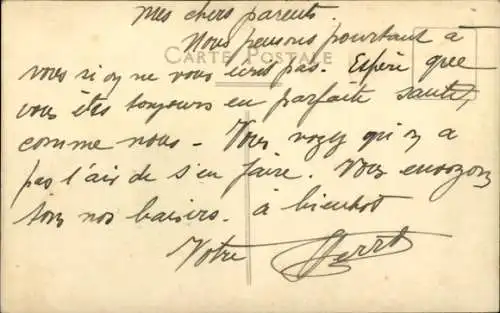 Mes chers parents.
Nous pensons pourtant à
CARTE POSTALE
vous si on ne vous écrit pas. Espère que
vous êtes toujours en parfaite santé,
comme nous - Vous voyez qu'on a
pas l'air de s'en faire. Vous envoyons
tous nos baisers. à bientôt
Votre